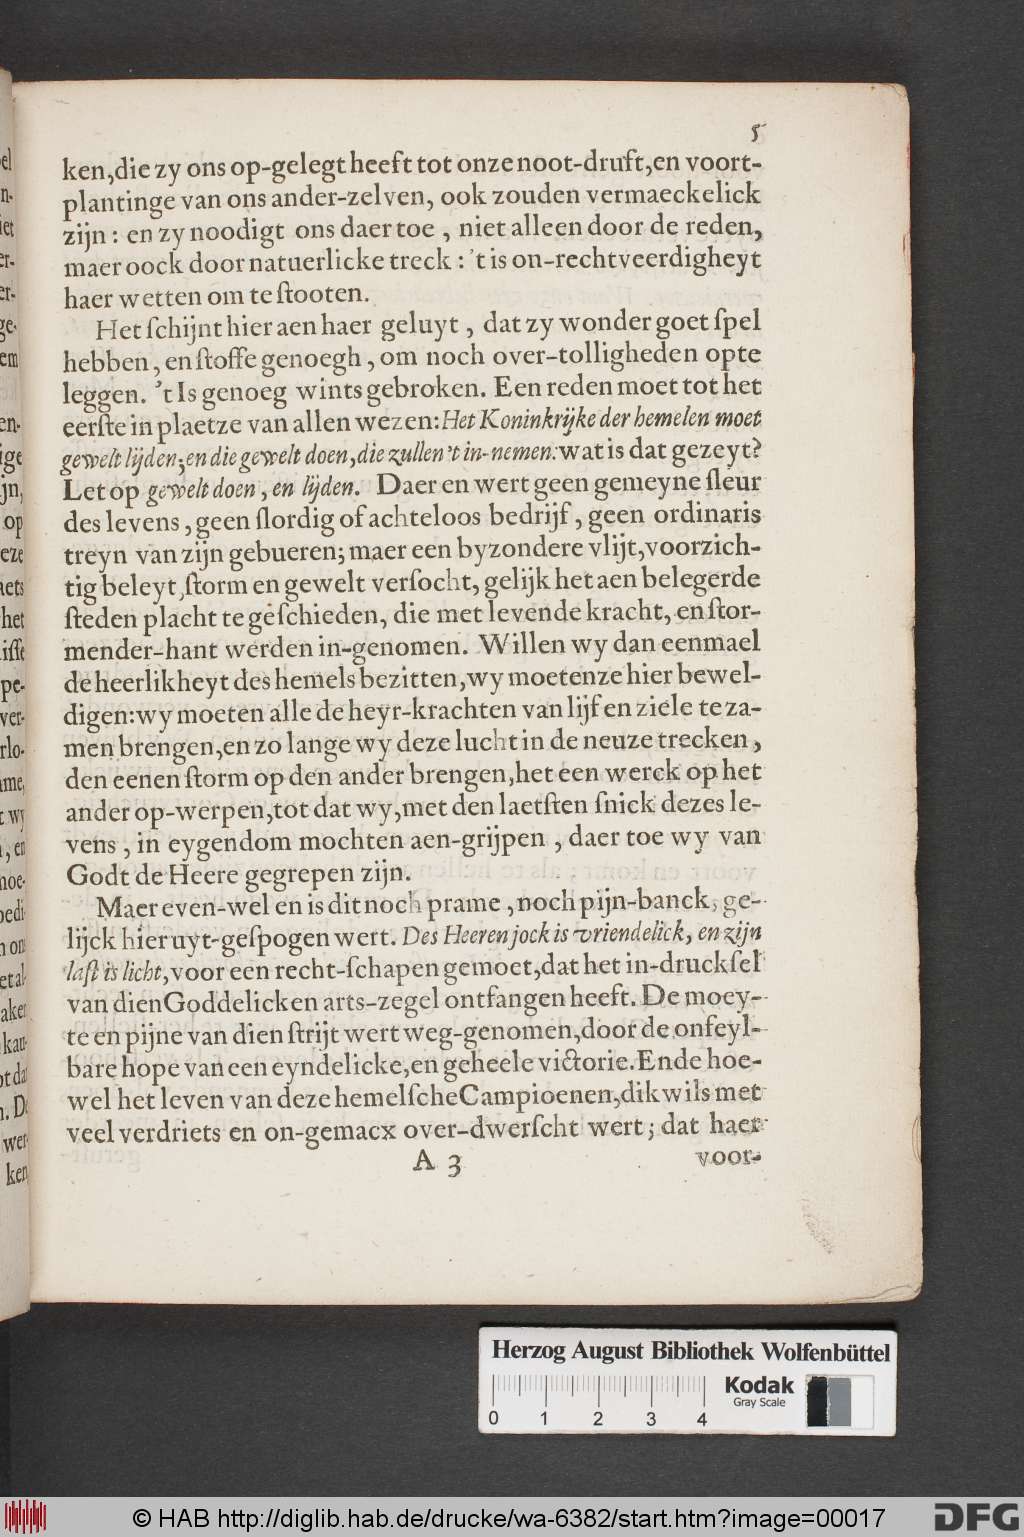 5
ken,die zy ons op-gelegt heeft tot onze noot-druft,en voort-
plantinge van ons ander-zelven, ook zouden vermaeckelick
zijn: en zy noodigt ons daer toe, niet alleen door de reden,
maer oock door natuerlicke treck: 't is on-rechtveerdigheyt
haer wetten om te ſtooten.
Het ſchijnt hier aen haer geluyt, dat zy wonder goet ſpel
hebben, en ſtoffe genoegh, om noch over-tolligheden opte
leggen. 't Is genoeg wints gebroken. Een reden moet tot het
eerſte in plaetze van allen wezen: Het Koninkrijke der hemelen moet
gewelt lijden; en die gewelt doen, die zullen 't in-nemen: wat is dat gezeyt?
Let op gewelt doen, en lijden. Daer en wert geen gemeyne ſleur
des levens, geen ſlordig of achteloos bedrijf, geen ordinaris
treyn van zijn gebueren; maer een byzondere vlijt, voorzich-
tig beleyt, ſtorm en gewelt verſocht, gelijk het aen belegerde
ſteden placht te geſchieden, die met levende kracht, en ſtor-
mender-hant werden in-genomen. Willen wy dan eenmael
de heerlikheyt des hemels bezitten, wy moetenze hier bewel-
digen: wy moeten alle de heyr-krachten van lijf en ziele te za-
men brengen, en zo lange wy deze lucht in de neuze trecken,
den eenen ſtorm op den ander brengen, het een werck op het
ander op-werpen, tot dat wy, met den laetſten ſnick dezes le-
vens, in eygendom mochten aen-grijpen, daer toe wy van
Godt de Heere gegrepen zijn.
Maer even-wel en is dit noch prame, noch pijn-banck, ge-
lijck hier uyt-geſpogen wert. Des Heeren jock is vriendelick, en zijn
laſt is licht, voor een recht-ſchapen gemoet, dat het in-druckſel
van dien Goddelicken arts-zegel ontfangen heeft. De moey-
te en pijne van dien ſtrijt wert weg-genomen, door de onfeyl-
bare hope van een eyndelicke, en geheele victorie. Ende hoe-
wel het leven van deze hemelſche Campioenen, dikwils met
veel verdriets en on-gemacx over-dwerſcht wert; dat haer
A 3 voor-
Herzog August Bibliothek Wolfenbüttel
Kodak
Gray Scale
0 1 2 3 4
© HAB http://diglib.hab.de/drucke/wa-6382/start.htm?image=00017
DFG